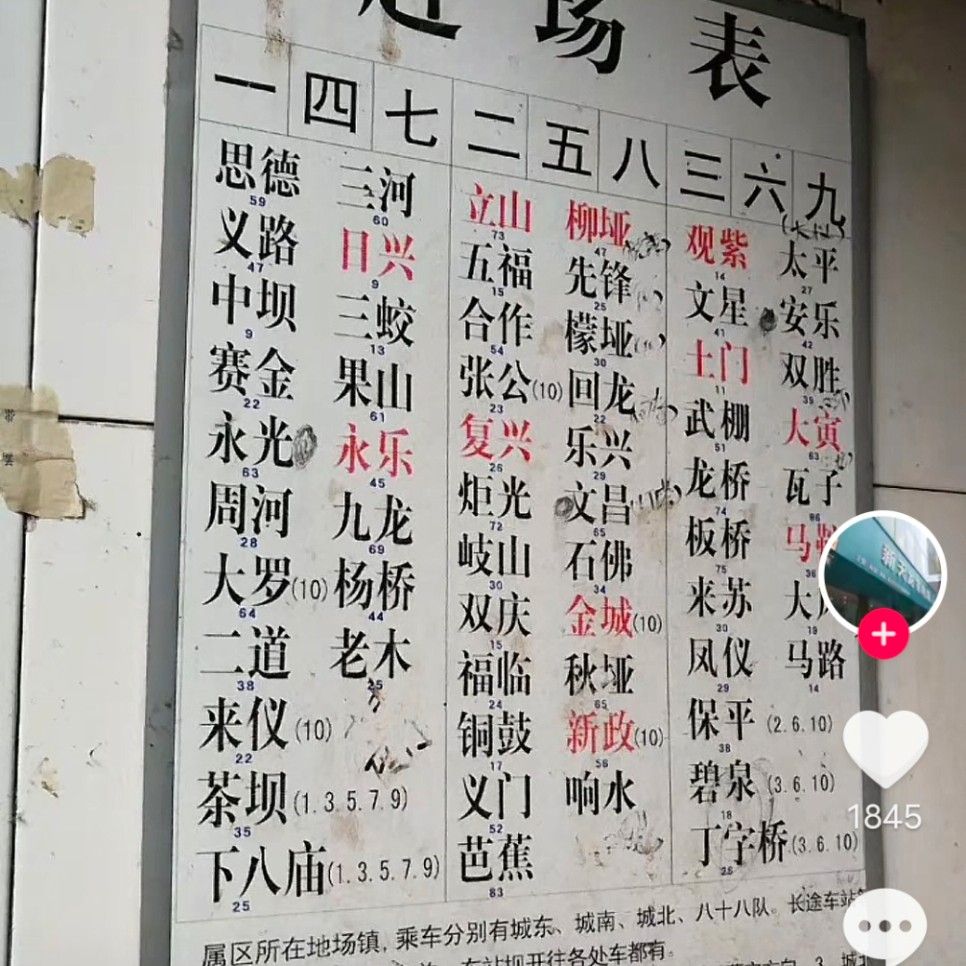 场表
一 四 七 二 五 八 三 六 九
思德
59
义路
47
中坝
9
赛金
22
永光
63
周河
28
大罗(10)
64
二道
38
来仪(10)
22
茶坝(1.3.5.7.9)
35
下八庙(1.3.5.7.9)
25
三河
60
日兴
9
三蛟
13
果山
61
永乐
45
九龙
69
杨桥
44
老木
25
立山
73
五福
15
合作
54
张公(10)
23
复兴
26
炬光
72
岐山
30
双庆
15
福临
24
铜鼓
17
义门
52
芭蕉
83
柳垭
47
先锋
25
檬垭
30
回龙
22
乐兴
29
文昌
65
石佛
34
金城(10)
秋垭
65
新政(10)
56
响水
观紫
14
文星
41
土门
11
武棚
51
龙桥
74
板桥
75
来苏
30
凤仪
29
保平(2.6.10)
38
碧泉(3.6.10)
18
丁字桥(3.6.10)
26
太平
27
安乐
42
双胜
39
大寅
63
瓦子
86
马
36
大
19
马路
14
属区所在地场镇,乘车分别有城东、城南、城北、八十八队。长途车站
车站坝开往各处车都有。
1845